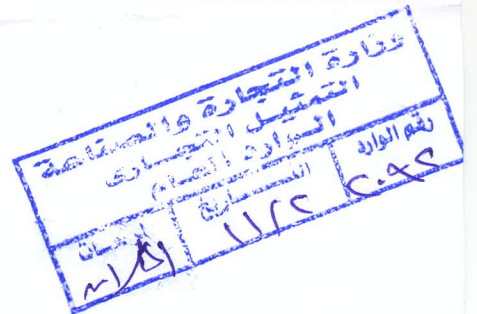 وزارة التجارة والصناعة
التمثيل التجارى
الوارد العام
رقم الوارد التاريخ
٢٠٩٢ ١١/٢